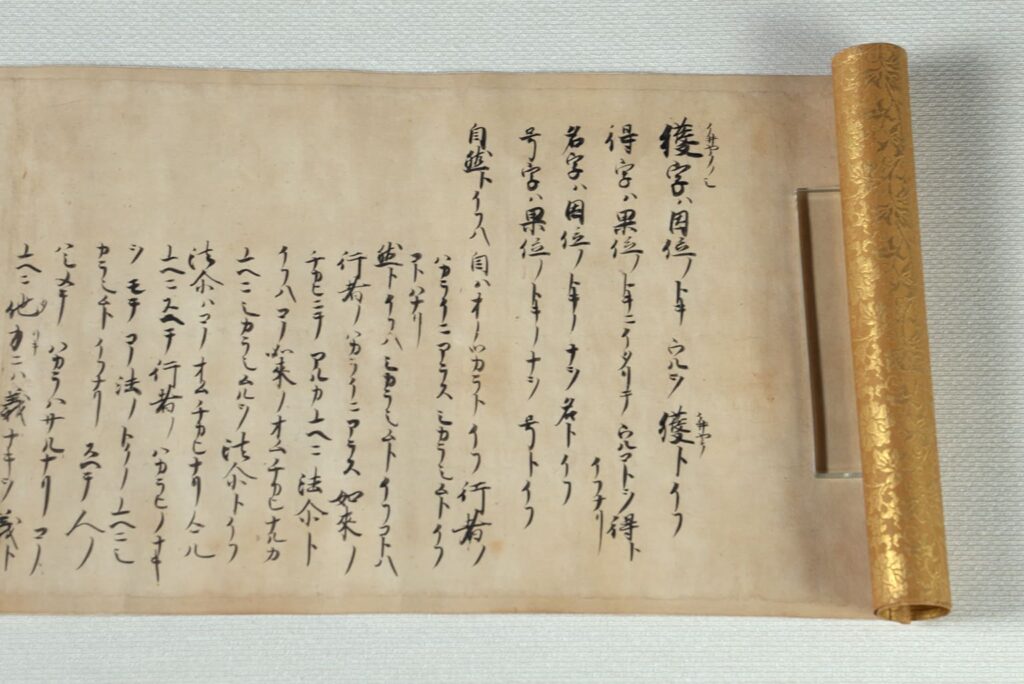 獲字ハ因位ノトキウルヲ獲トイフ
得字ハ果位ノトキニイタリテウルコトヲ得ト
イフナリ
名字ハ因位ノトキノナヲ名トイフ
号字ハ果位ノトキノナヲ号トイフ
自然トイフハ自ハオノツカラトイフ行者ノ
ハカライニアラスシカラシムトイフ
コトハナリ
然トイフハシカラシムトイフコトハ
行者ノハカライニアラス如来ノ
チカヒニテアルカユヘニ法尓ト
イフハコノ如来ノオムチカヒナルカ
ユヘニシカラシムルヲ法尓トイフ
法尓ハコノオムチカヒナリケル
ユヘニスヘテ行者ノハカラヒノナキ
ヲモテコノ法ノトクノユヘニシ
カラシムトイフナリスヘテ人ノ
ハシメテハカラハサルナリコノ
ユヘニ他力ニハ義ナキヲ義ト